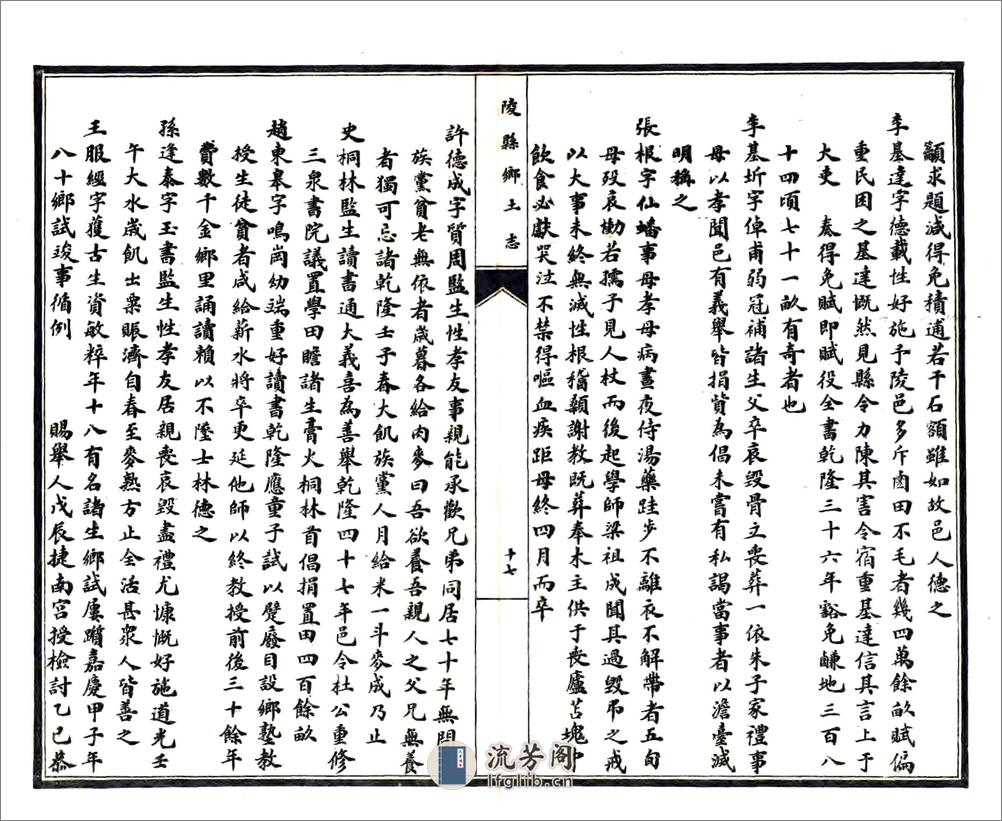 籲求題減得免積逋若干石額雖如故邑人德之
李基達字德載性好施予陵邑多斥鹵田不毛者幾四萬餘畝賦偏
重民困之基達慨然見縣令力陳其害令宿重基達信其言上于
大吏　奏得免賦即賦役全書乾隆三十六年豁免鹻地三百八
十四頃七十一畝有奇者也
李基圻字倬甫弱冠補諸生父卒哀毀骨立喪葬一依朱子家禮事
母以孝聞邑有義舉皆捐貲為倡未嘗有私謁當事者以澹臺滅
明稱之
張根字仙蟠事母孝母病晝夜侍湯藥跬步不離衣不解帶者五旬
母歿哀慟若孺子見人杖而後起學師梁祖成聞其過毀弔之戒
以大事未終無滅性根稽顙謝教既葬奉木主供于喪廬苫塊中
飲食必獻哭泣不禁得嘔血疾距母終四月而卒
陵縣鄉土志
十七
許德成字質周監生性孝友事親能承歡兄弟同居七十年無間
族黨貧老無依者歲暮各給肉麥曰吾欲養吾親人之父兄無養
者獨可忘諸乾隆壬子春大飢族黨人月給米一斗麥成乃止
史桐林監生讀書通大義喜為善舉乾隆四十七年邑令杜公重修
三泉書院議置學田贍諸生膏火桐林首倡捐置田四百餘畝
趙東皋字鳴崗幼端重好讀書乾隆應童子試以躄廢目設鄉塾教
授生徒貧者咸給薪水將卒更延他師以終教授前後三十餘年
費數千金鄉里誦讀賴以不墜士林德之
孫逢泰字玉書監生性孝友居親喪哀毀盡禮尤慷慨好施道光壬
午大水歲飢出粟賑濟自春至麥熟方止全活甚眾人皆善之
王服經字獲古生資敏粹年十八有名諸生鄉試屢躓嘉慶甲子年
八十鄉試竣事循例　賜舉人戊辰捷南宮授檢討乙巳恭
流芳阁
lfglib.cn